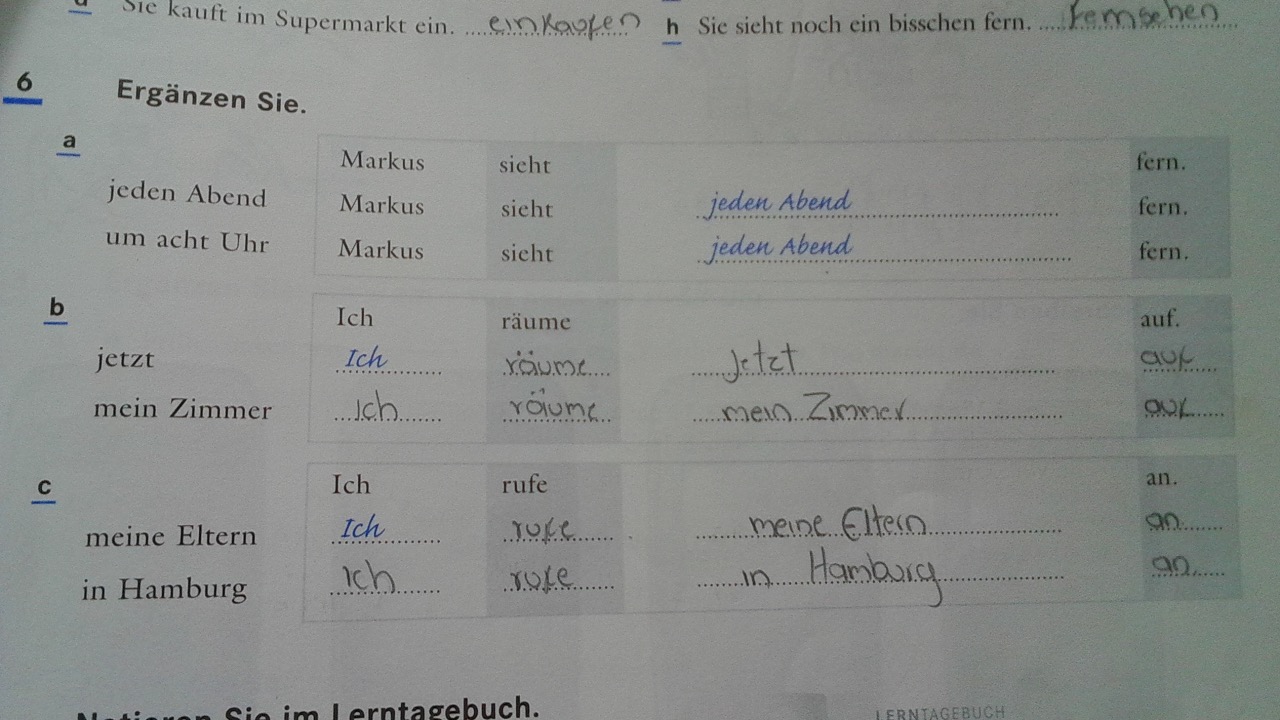 Sie kauft im Supermarkt ein. einkaufen h Sie sieht noch ein bisschen fern. fernsehen
6 Ergänzen Sie.
a Markus sieht fern.
jeden Abend Markus sieht jeden Abend fern.
um acht Uhr Markus sieht jeden Abend fern.
b Ich räume auf.
jetzt Ich räume Jetzt auf
mein Zimmer Ich räume mein Zimmer auf
c Ich rufe an.
meine Eltern Ich rufe meine Eltern an
in Hamburg Ich rufe in Hamburg an
Notieren Sie im Lerntagebuch. LERNTAGEBUCH